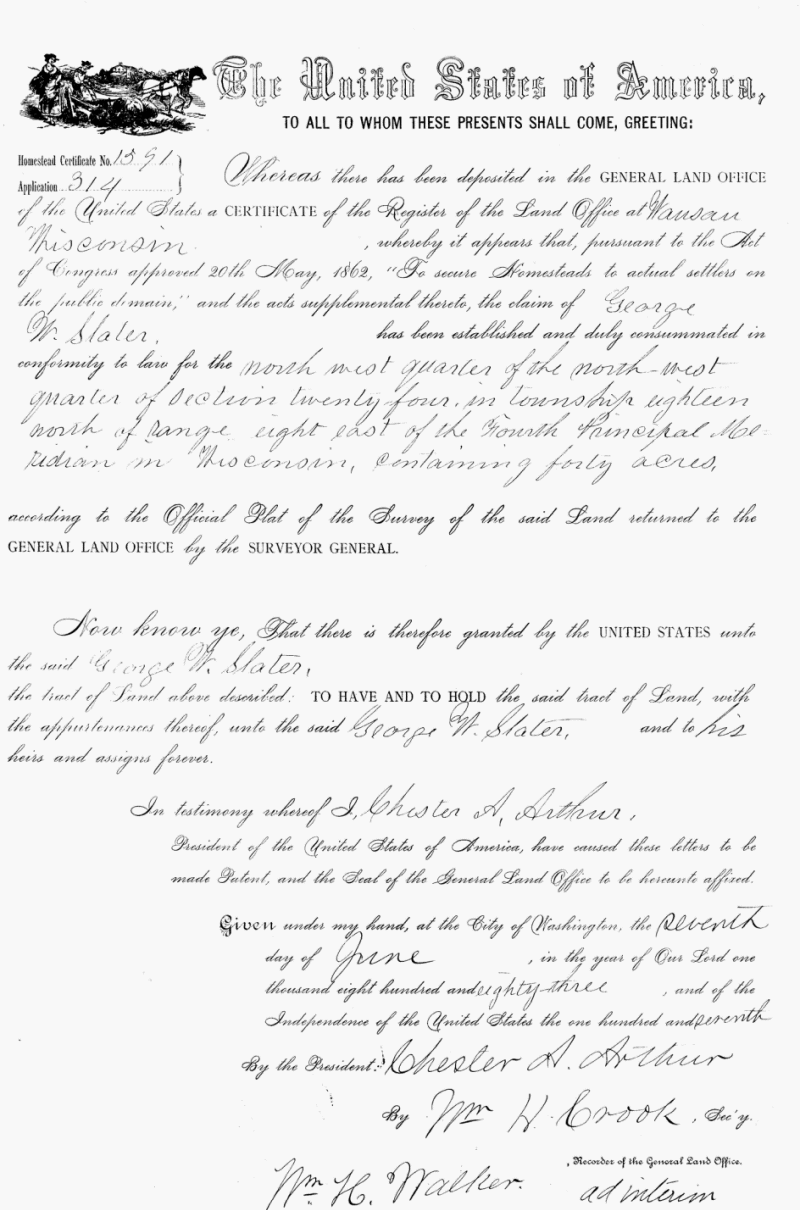 The United States of America,
TO ALL TO WHOM THESE PRESENTS SHALL COME, GREETING:
Homestead Certificate No. 1591
Application 314
Whereas there has been deposited in the GENERAL LAND OFFICE
of the United States a CERTIFICATE of the Register of the Land Office at Wausau
Wisconsin, whereby it appears that, pursuant to the Act
of Congress approved 20th May, 1862, "To secure Homesteads to actual settlers on
the public domain," and the acts supplemental thereto, the claim of George
W. Slater. has been established and duly consummated in
conformity to law for the north west quarter of the north-west
quarter of Section twenty four, in township eighteen
north of range eight east of the Fourth Principal Me-
ridian in Wisconsin, containing forty acres,
according to the Official Plat of the Survey of the said Land returned to the
GENERAL LAND OFFICE by the SURVEYOR GENERAL.
Now know ye, That there is therefore granted by the UNITED STATES unto
the said George W. Slater,
the tract of Land above described: TO HAVE AND TO HOLD the said tract of Land, with
the appurtenances thereof, unto the said George W. Slater, and to his
heirs and assigns forever.
In testimony whereof I, Chester A. Arthur,
President of the United States of America, have caused these letters to be
made Patent, and the Seal of the General Land Office to be hereunto affixed.
Given under my hand, at the City of Washington, the seventh
day of June, in the year of Our Lord one
thousand eight hundred and eighty-three, and of the
Independence of the United States the one hundred and seventh
By the President: Chester A. Arthur
By Wm H. Crook, Sec'y.
, Recorder of the General Land Office.
Wm. H. Walker. ad interim